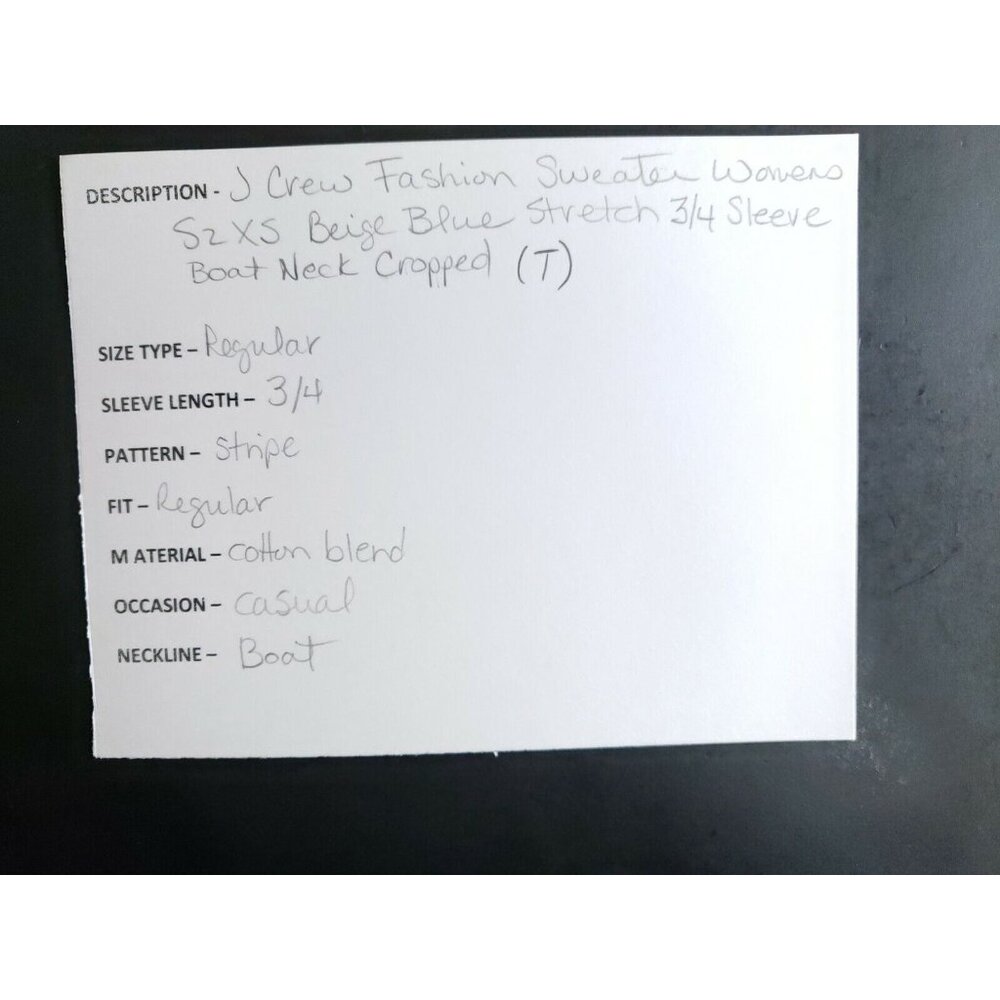 DESCRIPTION - J Crew Fashion Sweater Womens
Sz XS Beige Blue Stretch 3/4 Sleeve
Boat Neck Cropped (T)
SIZE TYPE – Regular
SLEEVE LENGTH – 3/4
PATTERN – Stripe
FIT – Regular
M ATERIAL – cotton blend
OCCASION – casual
NECKLINE – Boat